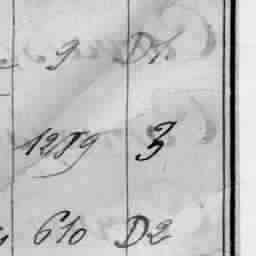 9 D1.
1289 3
610 D2